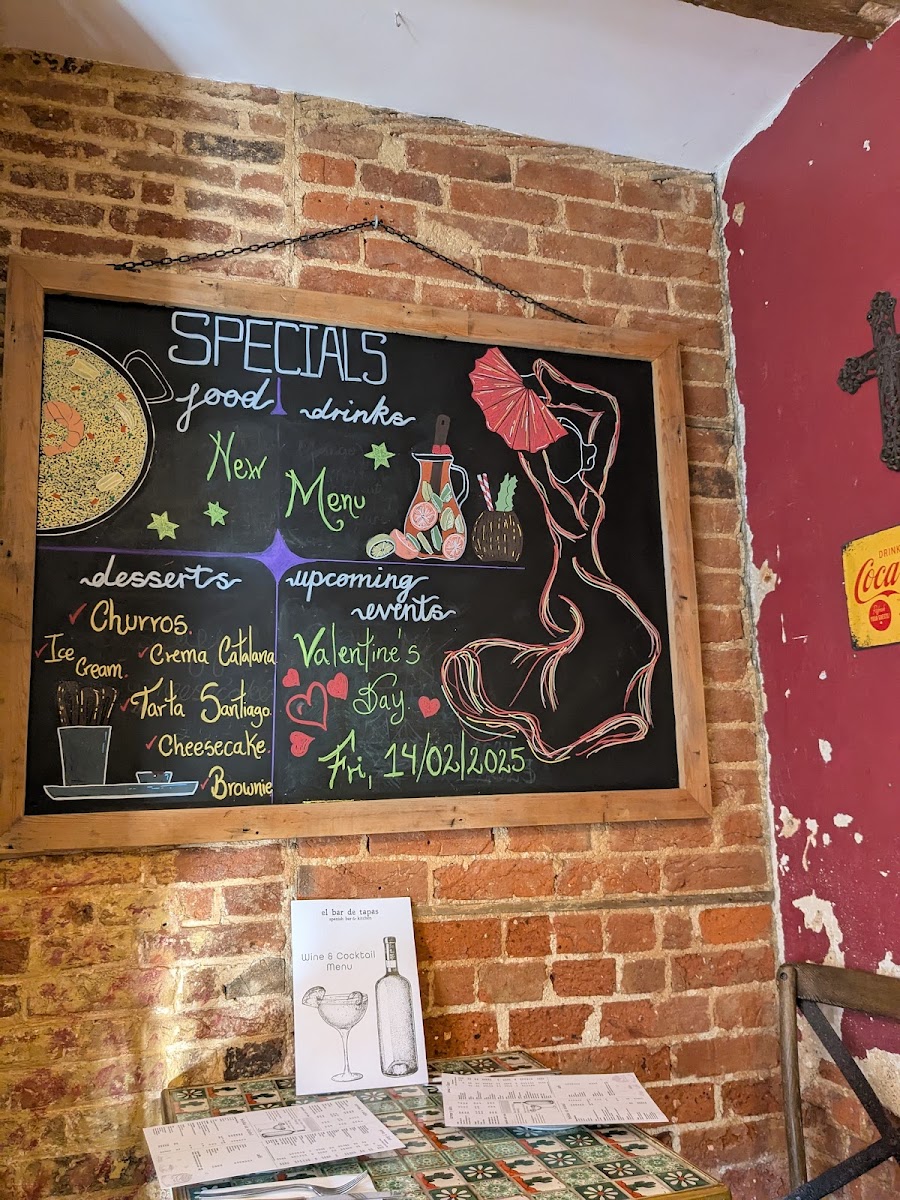 SPECIALS
food
drinks
New
Menu
desserts
Churros.
Ice
Cream.
Crema Catalana
Tarta Santiago.
Cheesecake.
Brownie
upcoming
events
Valentine's
Day.
Fri, 14/02/2025
DRINK
Coca
el bar de tapas
spanish bar & kitchen
Wine & Cocktail
Menu